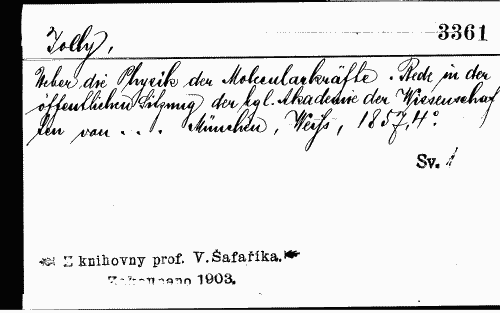 3361
Jolly,
Ueber die Physik der Molecularkräfte. Rede in der
öffentlichen Sitzung der kgl. Akademie der Wissenschaf
ten von . . . München, Weiss, 1857, 4°.
Sv. 1
Z knihovny prof. V. Šafaříka.
Zakoupeno 1903.